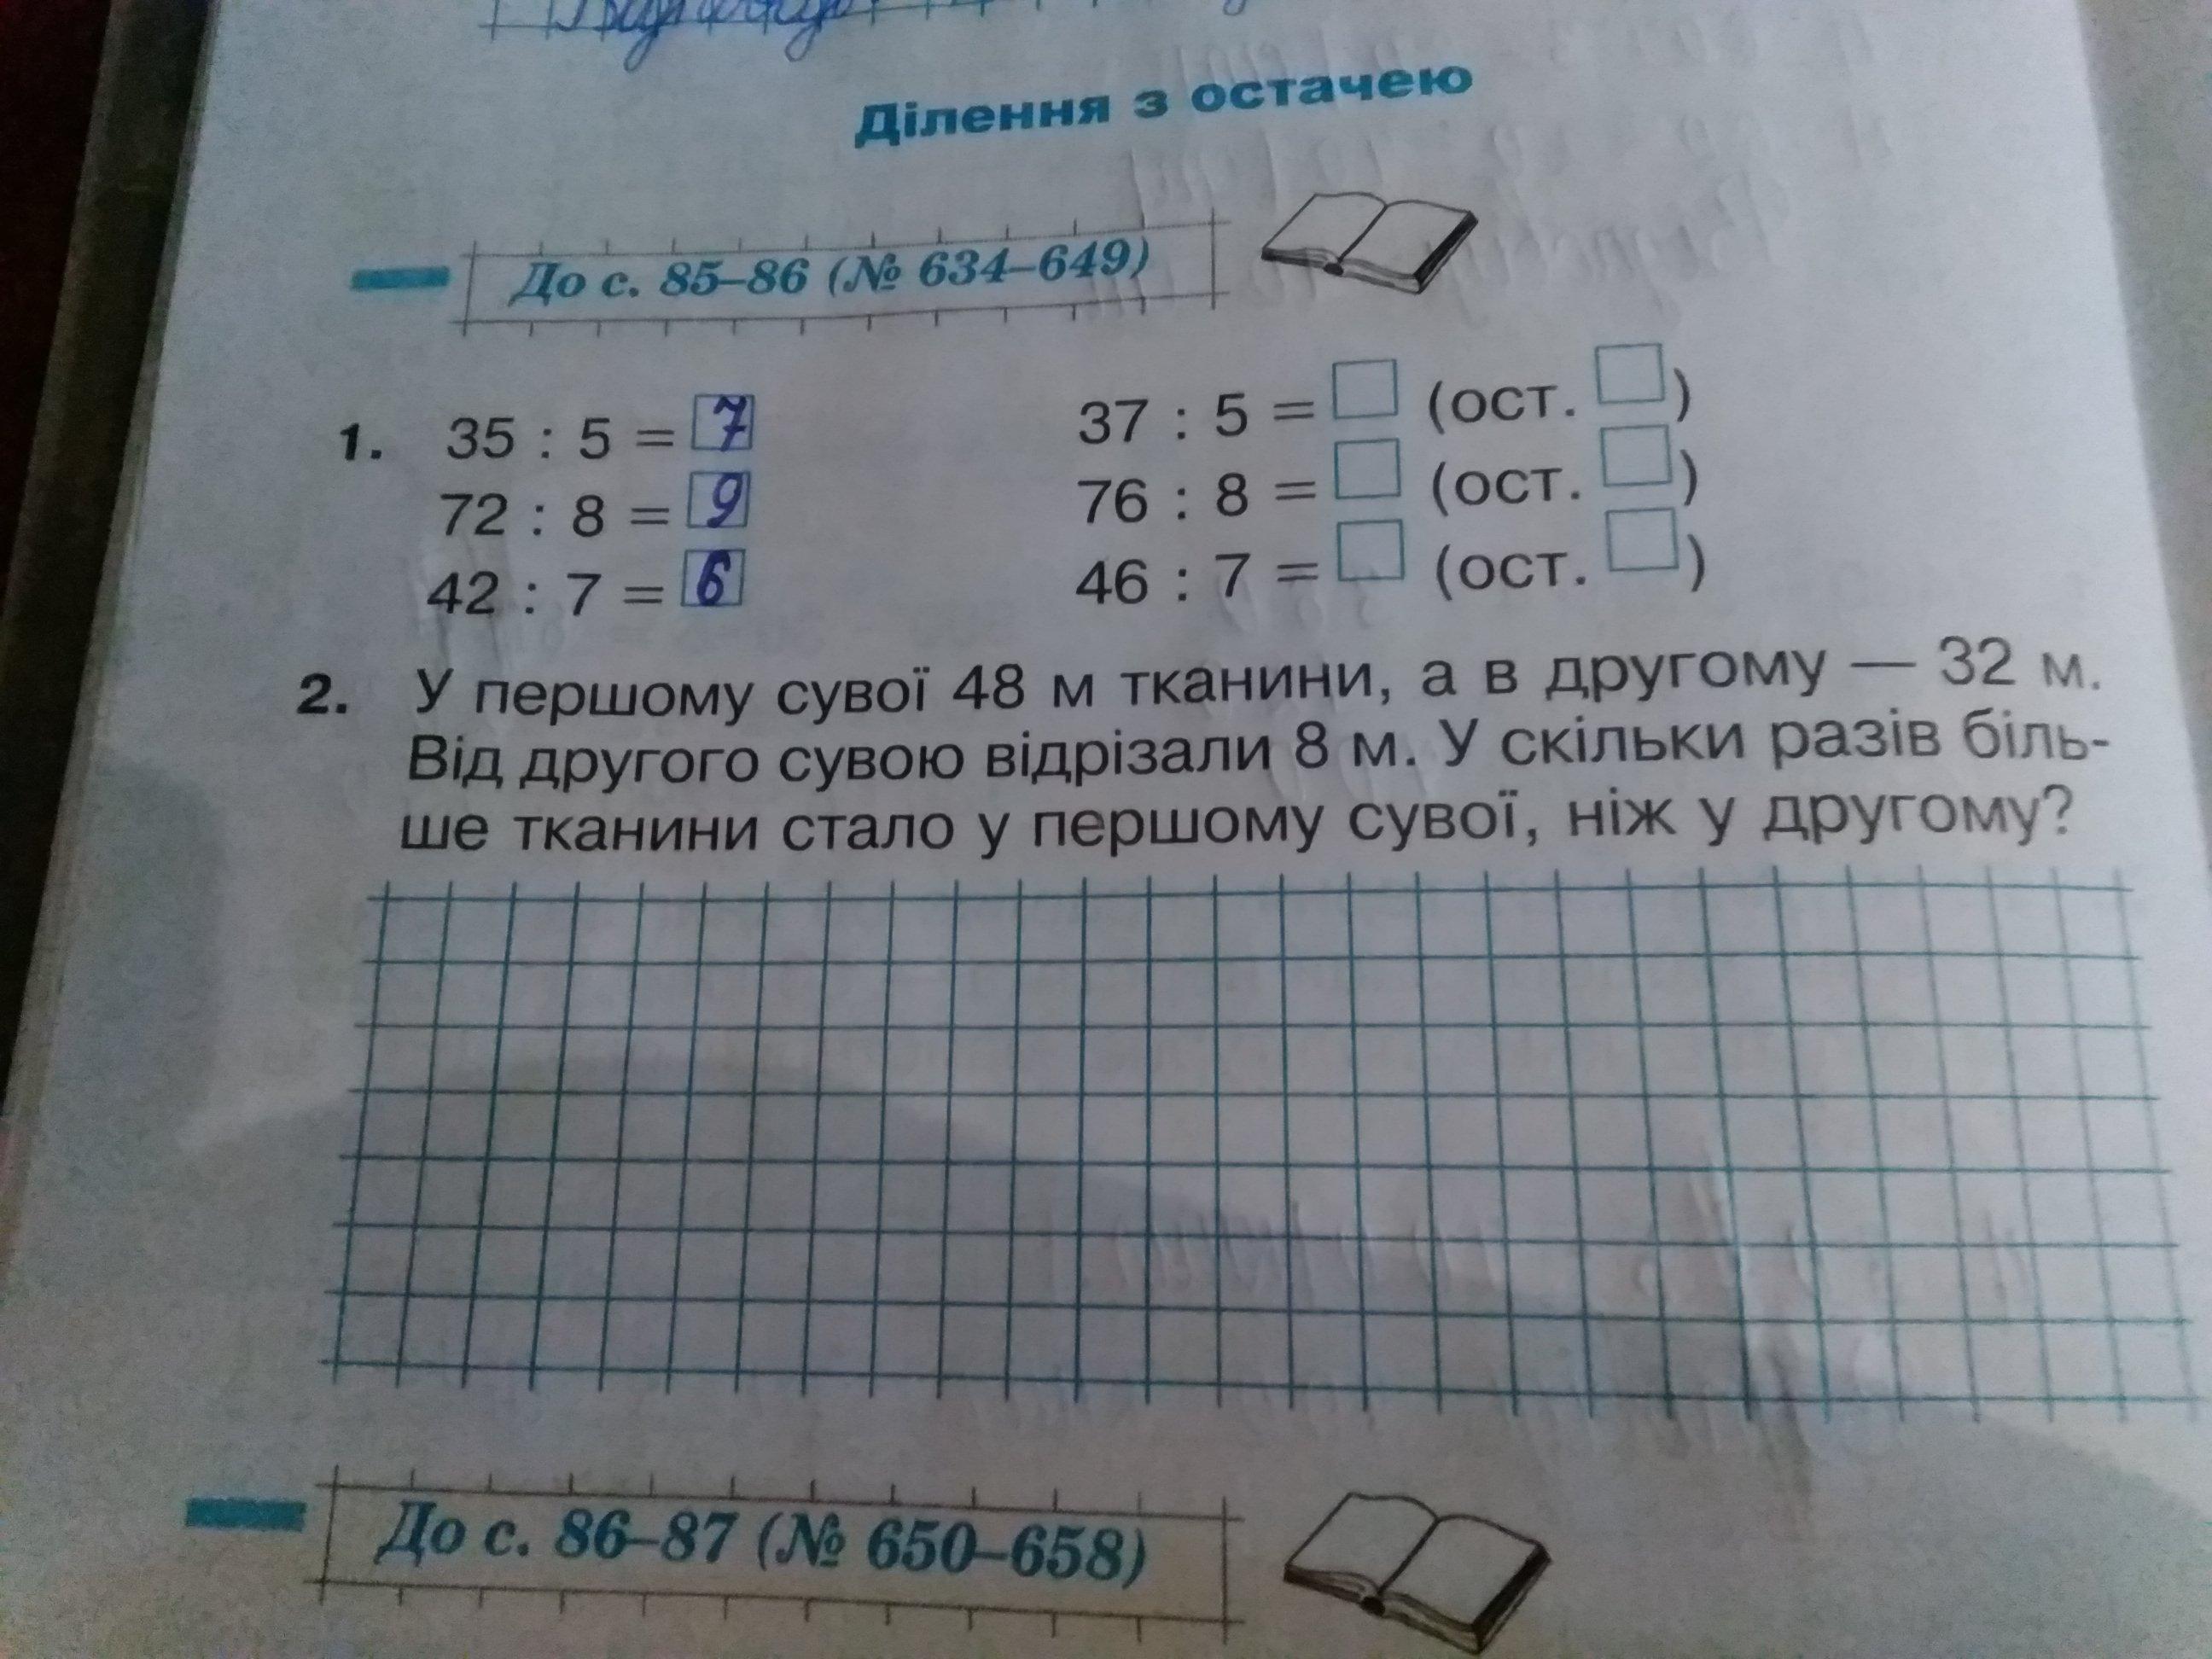 Ділення з остачею
До с. 85–86 (№ 634–649)
1. 35 : 5 = 7 37 : 5 = (ост. )
72 : 8 = 9 76 : 8 = (ост. )
42 : 7 = 6 46 : 7 = (ост. )
2. У першому сувої 48 м тканини, а в другому — 32 м.
Від другого сувою відрізали 8 м. У скільки разів біль-
ше тканини стало у першому сувої, ніж у другому?
До с. 86–87 (№ 650–658)